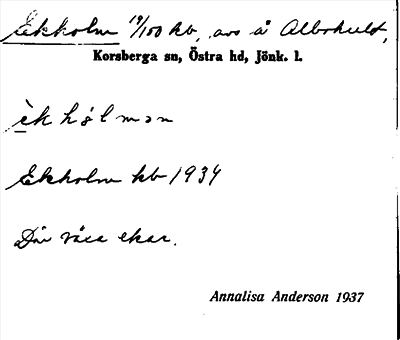 Ekholm 19/100 kb, avs å Albohult,
Korsberga sn, Östra hd, Jönk. l.
èk hólmən
Ekholm kb 1934
Där växa ekar.
Annalisa Anderson 1937